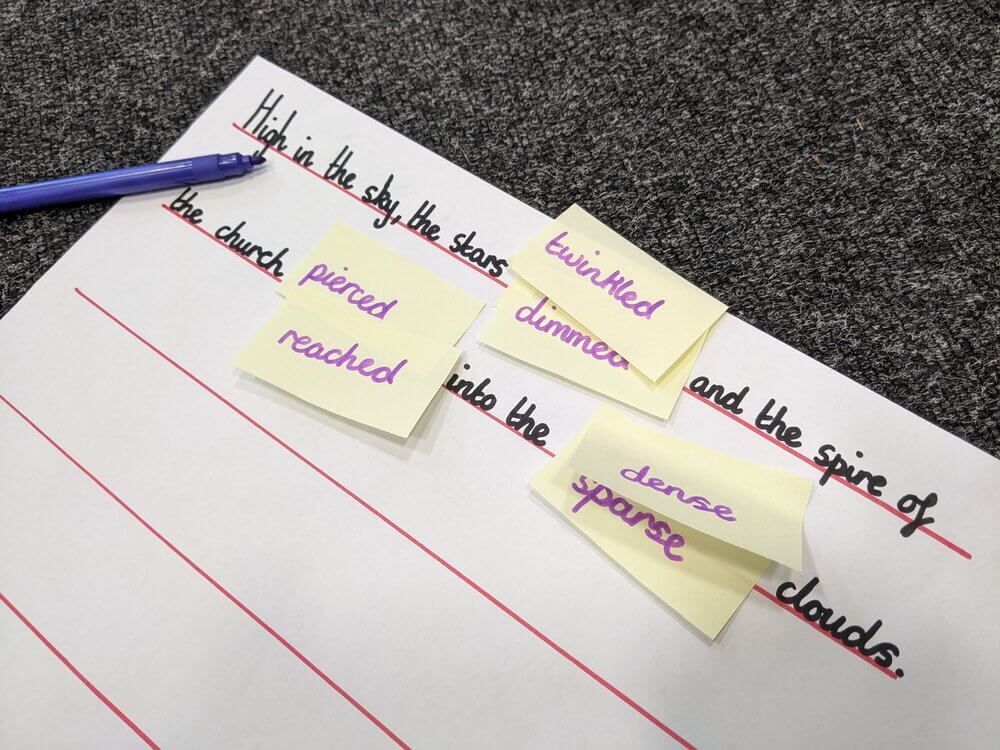 High in the sky, the stars twinkled and the spire of
dimmed
the church pierced into the dense clouds.
reached sparse